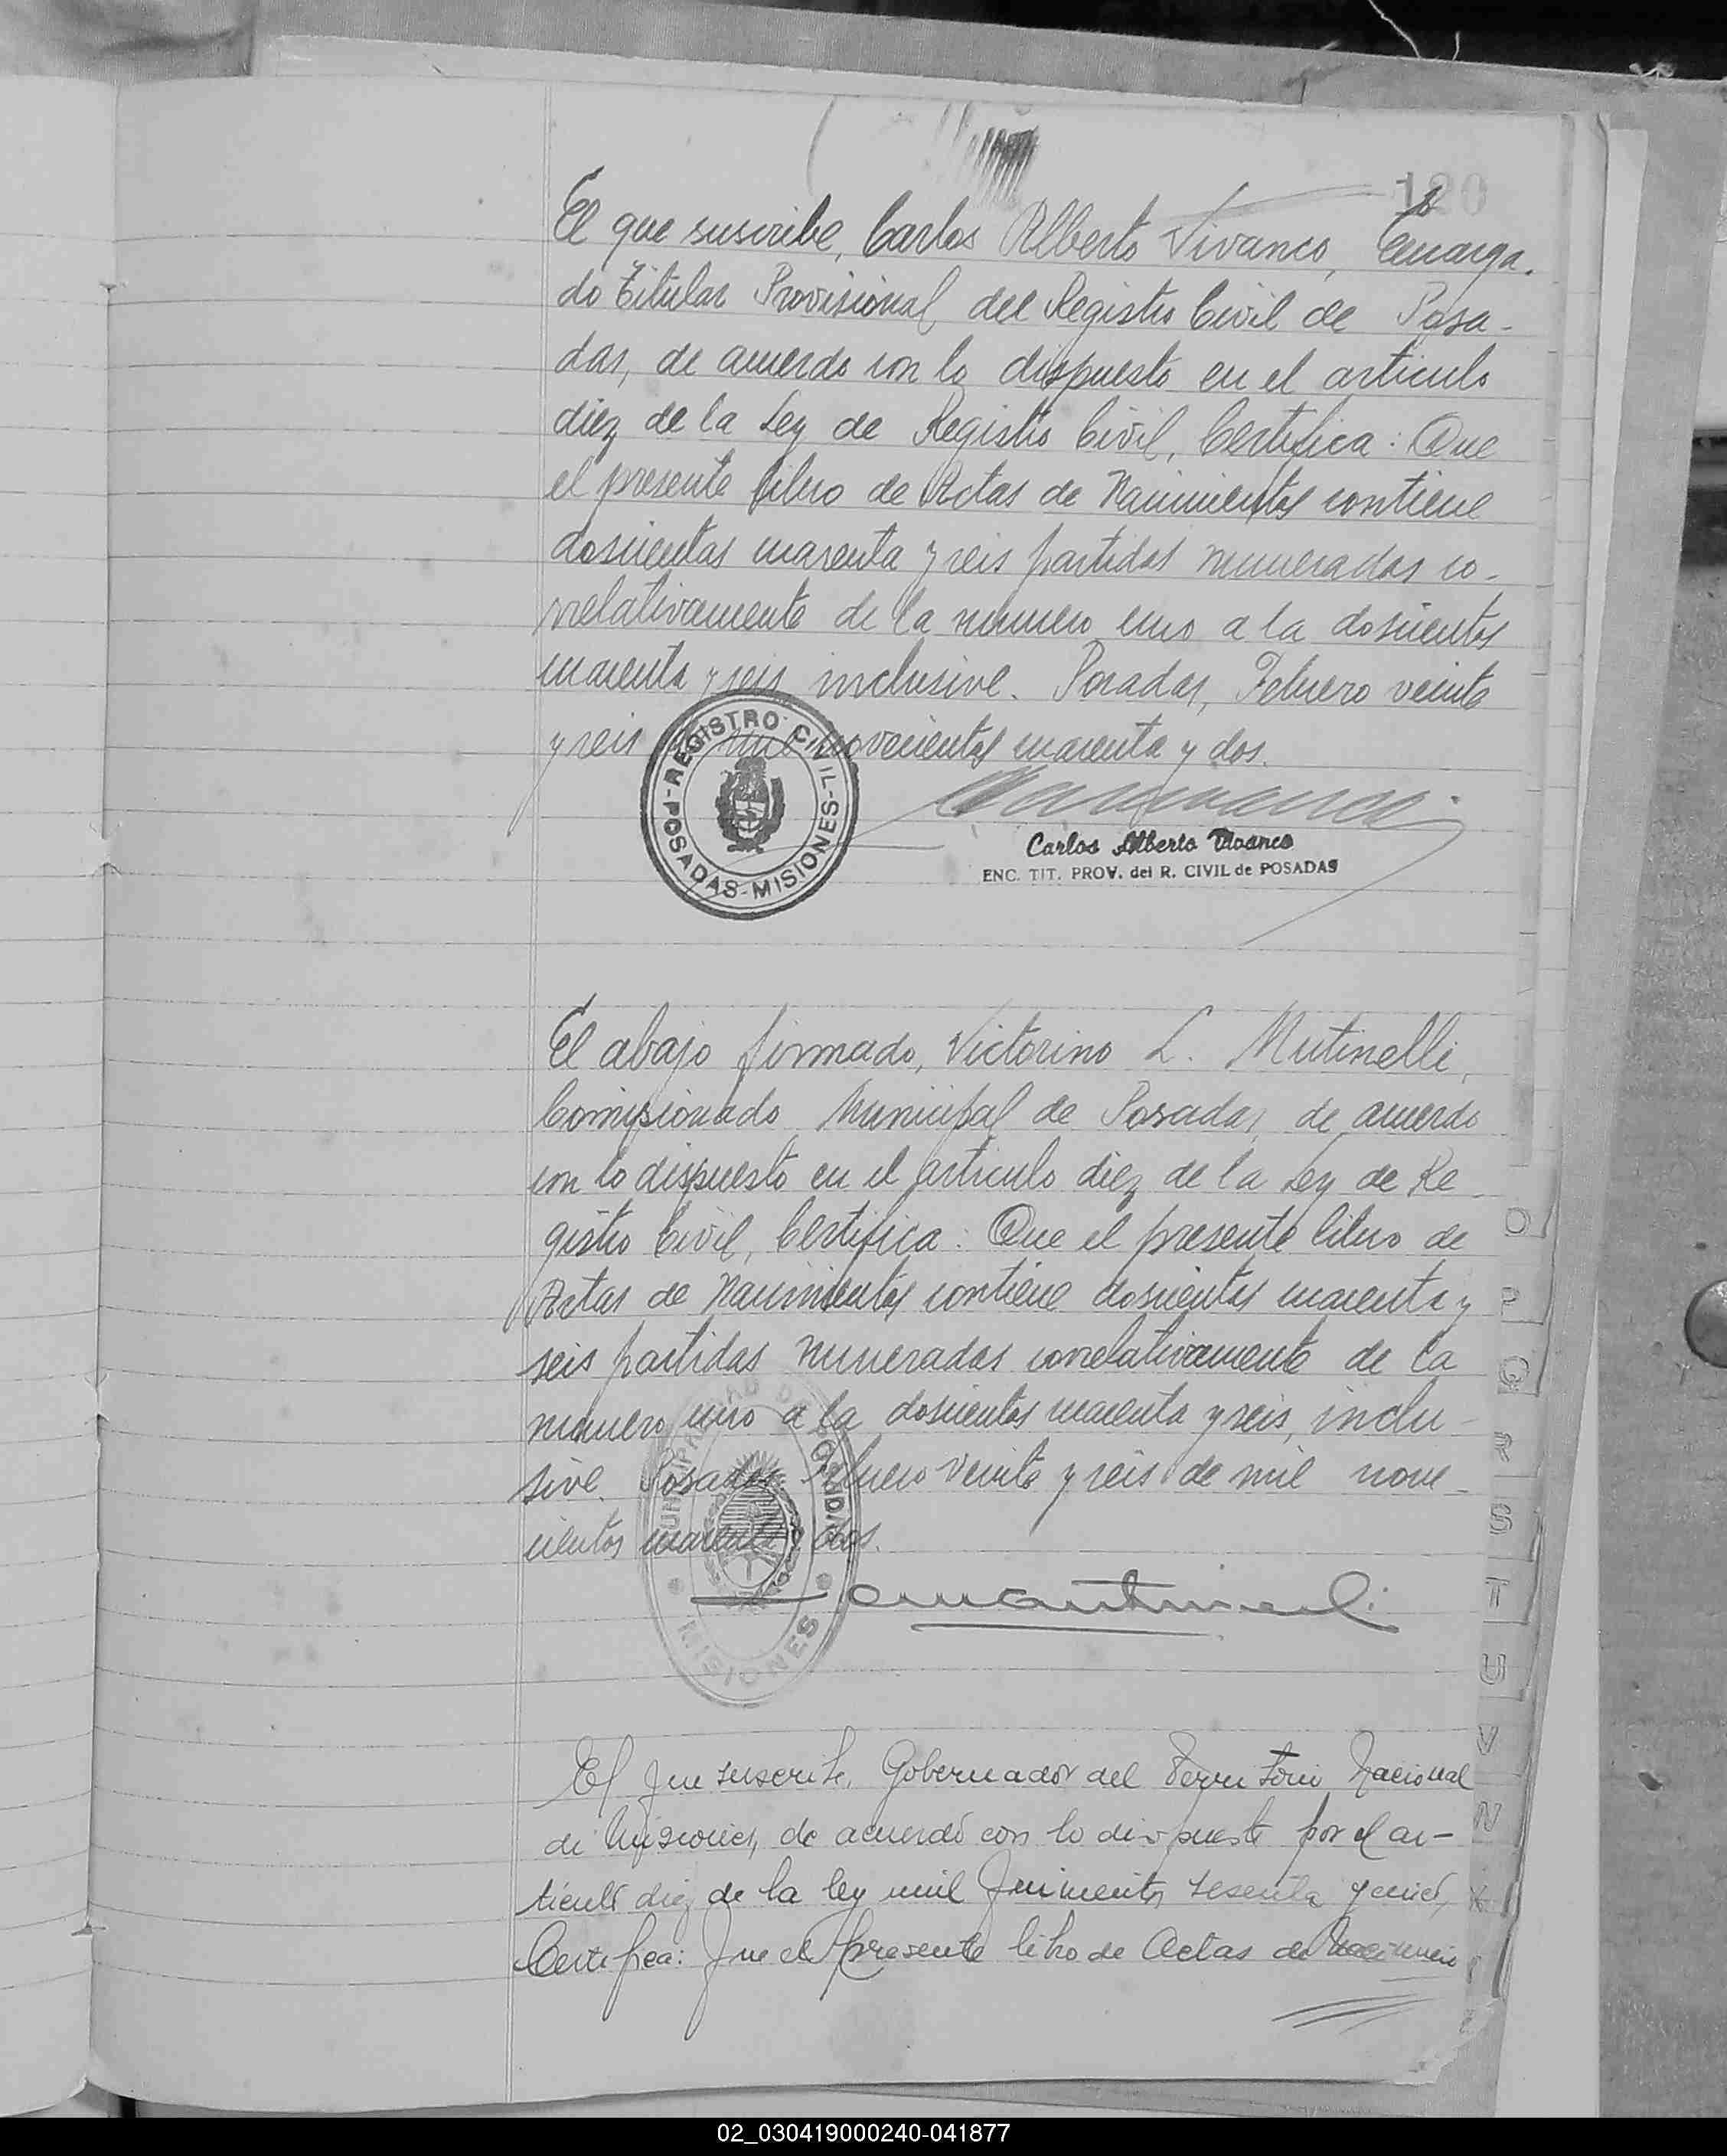 120
El que suscribe, Carlos Alberto Vivanco, Encarga-
do Titular Provisional del Registro Civil de Posa-
das, de acuerdo con lo dispuesto en el articulo
diez de la Ley de Registro Civil, Certifica: Que
el presente libro de Actas de Nacimientos contiene
doscientas cuarenta y seis partidas numeradas co-
rrelativamente de la numero uno a la doscientos
cuarenta y seis inclusive. Posadas, Febrero veinte
y seis de mil novecientos cuarenta y dos.
REGISTRO CIVIL
-POSADAS-MISIONES-
Carlos Alberto Vivanco
ENC. TIT. PROV. del R. CIVIL de POSADAS
El abajo firmado, Victorino L. Mutinelli,
Comisionado Municipal de Posadas, de acuerdo
con lo dispuesto en el articulo diez de la Ley de Re-
gistro Civil, Certifica: Que el presente libro de
Actas de Nacimientos contiene doscientos cuarenta y
seis partidas numeradas correlativamente de la
numero uno a la doscientos cuarenta y seis, inclu-
sive. Posadas, Febrero veinte y seis de mil nove-
cientos cuarenta y dos.
MUNICIPALIDAD DE POSADAS
MISIONES
El que suscribe, Gobernador del Territorio Nacional
de Misiones, de acuerdo con lo dispuesto por el ar-
ticulo diez de la ley mil quinientos sesenta y cinco,
Certifica: Que el presente libro de Actas de Nacimien
O
P
Q
R
S
T
U
V
02_030419000240-041877